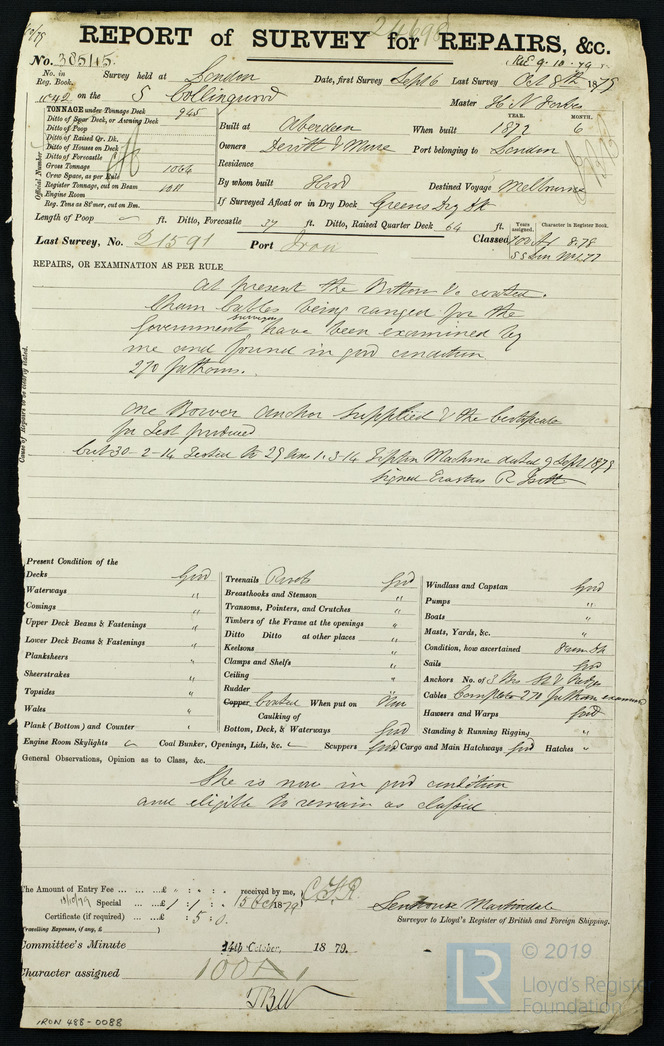 24698
REPORT of SURVEY for REPAIRS, &c.
No. 38545
Rec 9.10.79
No. in Reg. Book.
Survey held at London
Date, first Survey Sept 6 Last Survey Oct 8th 1879
on the S Collingwood
Master
TONNAGE under Tonnage Deck 945
Ditto of Spar Deck, or Awning Deck
Ditto of Poop
Ditto of Raised Qr. Dk.
Ditto of Houses on Deck
Ditto of Forecastle
Gross Tonnage 1064
Crew Space, as per Rule
Register Tonnage, cut on Beam 1011
Engine Room
Reg. Tons as Stmer, cut on Bm.
Official Number
YEAR. MONTH.
Built at Aberdeen When built 1872 6
Owners Devitt & Moore Port belonging to London
Residence
By whom built Hood Destined Voyage Melbourne
If Surveyed Afloat or in Dry Dock Greens Dry Dk
Length of Poop ft. Ditto, Forecastle 37 ft. Ditto, Raised Quarter Deck 64 ft.
Years assigned. Character in Register Book.
Last Survey, No. 21591 Port Iron Classed 100A1 8.78
REPAIRS, OR EXAMINATION AS PER RULE
At present the Bottom is coated.
Chain Cables being ranged for the
Government surveyor have been examined by
me and found in good condition
270 fathoms.
One Bower anchor supplied & the Certificate
for Test produced
Cwt 30-2-14 Tested to 29 tons 1.3.14 Tipton Machine dated 9 Sept 1879
signed Erastus R
Cause of Repairs to be clearly stated.
Present Condition of the
Decks Good
Waterways "
Comings "
Upper Deck Beams & Fastenings "
Lower Deck Beams & Fastenings "
Planksheers "
Sheerstrakes "
Topsides "
Wales "
Plank (Bottom) and Counter "
Treenails Rivets Good
Breasthooks and Stemson "
Transoms, Pointers, and Crutches "
Timbers of the Frame at the openings "
Ditto Ditto at other places "
Keelsons "
Clamps and Shelfs "
Ceiling "
Rudder "
Copper Coated When put on Now
Caulking of
Bottom, Deck, & Waterways Good
Windlass and Capstan Good
Pumps "
Boats "
Masts, Yards, &c. "
Condition, how ascertained from dk
Sails Good
Anchors No. of 3 Brs St & Kedges
Cables Complete 270 fathom examined
Hawsers and Warps Good
Standing & Running Rigging "
Engine Room Skylights Coal Bunker, Openings, Lids, &c. Scuppers Good Cargo and Main Hatchways Good Hatches "
General Observations, Opinion as to Class, &c.
She is now in good condition
and eligible to remain as classed
The Amount of Entry Fee ... £ : : received by me,
13/10/79 Special ... £ 1 : 1 : 15 Oct 1879
Certificate (if required) ... £ : 5 : 0.
(Travelling Expenses, if any, £ )
Senhouse Martindale
Surveyor to Lloyd's Register of British and Foreign Shipping.
Committee's Minute 14th October, 1879.
Character assigned 100A1
TBW
IRON 488-0088
LR
© 2019
Lloyd's Register
Foundation